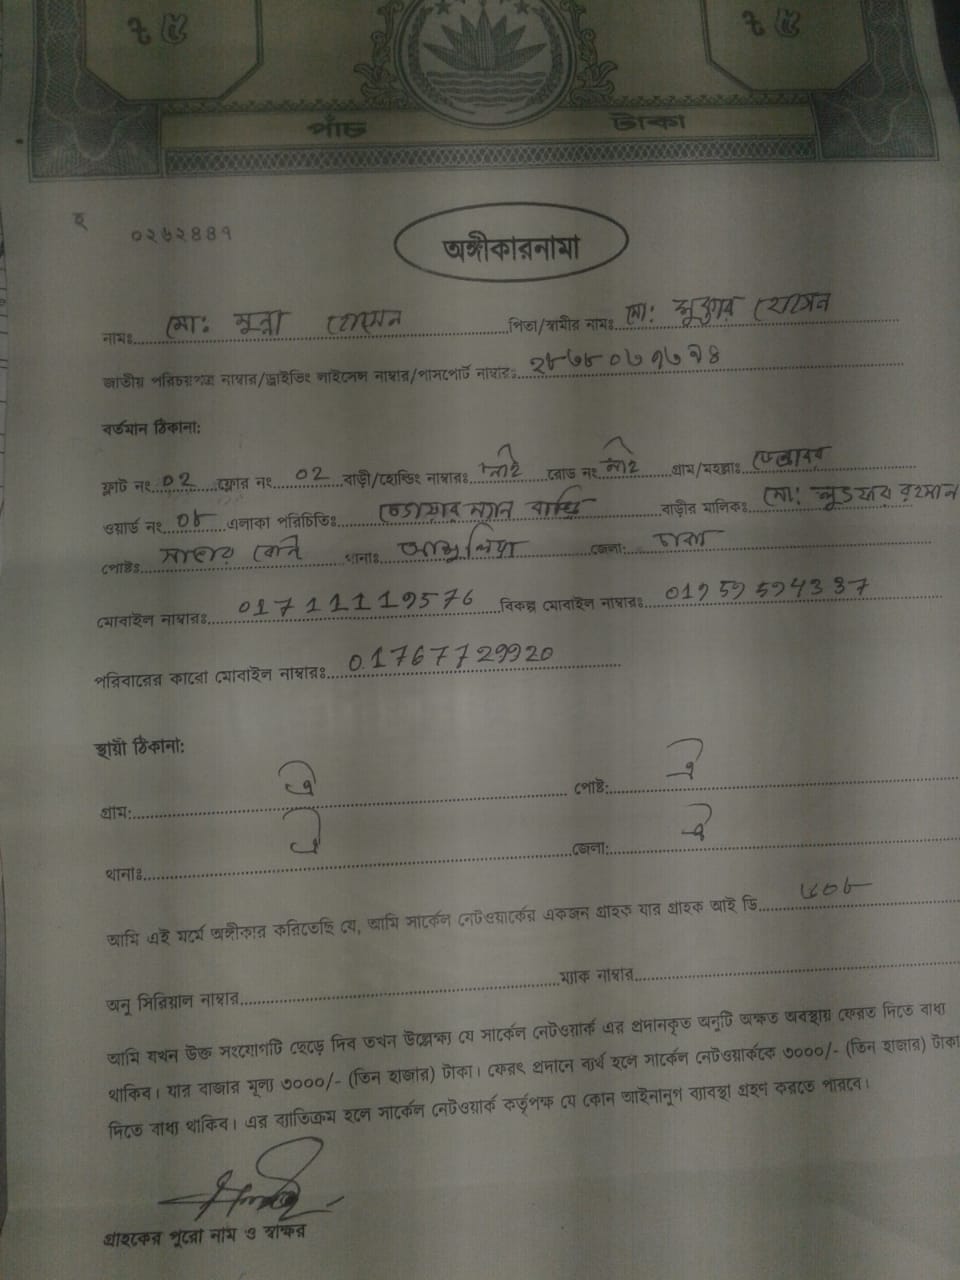 ৳ ৫ ৳ ৫
পাঁচ টাকা
০২৬২৪৪৭
অঙ্গীকারনামা
নামঃ মোঃ মুন্না হোসেন পিতা/স্বামীর নামঃ মোঃ হোসেন
জাতীয় পরিচয়পত্র নাম্বার/ড্রাইভিং লাইসেন্স নাম্বার/পাসপোর্ট নাম্বারঃ
বর্তমান ঠিকানা:
ফ্লাট নং ০2 ফ্লোর নং ০2 বাড়ী/হোল্ডিং নাম্বারঃ নাই রোড নং নাই গ্রাম/মহল্লাঃ
ওয়ার্ড নং ০৮ এলাকা পরিচিতিঃ বাড়ীর মালিকঃ মোঃ রহমান
পোষ্টঃ থানাঃ আশুলিয়া জেলা: ঢাকা
মোবাইল নাম্বারঃ বিকল্প মোবাইল নাম্বারঃ
পরিবারের কারো মোবাইল নাম্বারঃ 01767729920
স্থায়ী ঠিকানা:
গ্রাম: ঐ পোষ্ট: ঐ
থানাঃ ঐ জেলা: ঐ
আমি এই মর্মে অঙ্গীকার করিতেছি যে, আমি সার্কেল নেটওয়ার্কের একজন গ্রাহক যার গ্রাহক আই ডি
অনু সিরিয়াল নাম্বার ম্যাক নাম্বার
আমি যখন উক্ত সংযোগটি ছেড়ে দিব তখন উল্লেক্ষ্য যে সার্কেল নেটওয়ার্ক এর প্রদানকৃত অনুটি অক্ষত অবস্থায় ফেরত দিতে বাধ্য
থাকিব। যার বাজার মূল্য ৩০০০/- (তিন হাজার) টাকা। ফেরৎ প্রদানে ব্যর্থ হলে সার্কেল নেটওয়ার্ককে ৩০০০/- (তিন হাজার) টাকা
দিতে বাধ্য থাকিব। এর ব্যাতিক্রম হলে সার্কেল নেটওয়ার্ক কর্তৃপক্ষ যে কোন আইনানুগ ব্যাবস্থা গ্রহণ করতে পারবে।
গ্রাহকের পুরো নাম ও স্বাক্ষর